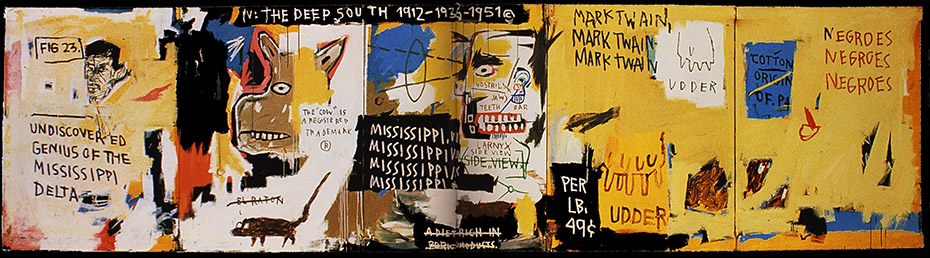 IV: THE DEEP SOUTH 1912-1936-1951©
FIG 23.
UNDISCOVERED
GENIUS OF THE
MISSISSIPPI
DELTA
THE "COW" IS
A REGISTERED
TRADEMARK
®
EL RATON
MISSISSIPPI
MISSISSIPPI
MISSISSIPPI
MISSISSIPPI
NOSTRILS
JAW
TEETH EAR
LARNYX
SIDE VIEW
SIDE VIEW
A DIET RICH IN
PORK PRODUCTS.
MARK TWAIN,
MARK TWAIN
MARK TWAIN
UDDER
PER
LB.
49¢
UDDER
COTTON
ORIGIN
OF.
NEGROES
NEGROES
NEGROES